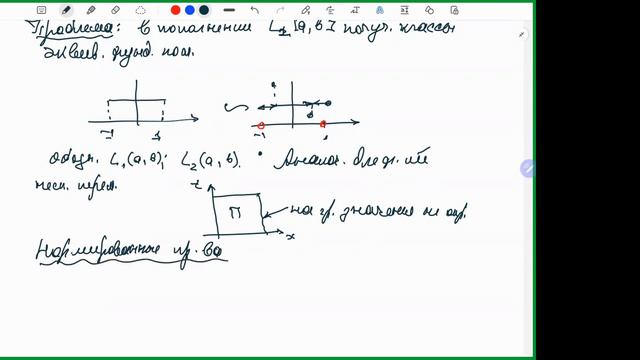 Проблема: в пополнении L₁[a, b] получ. классы
эквив. фунд. посл.
-1 1 -1 1
Обозн. L₁(a, b); L₂(a, b). • Аналог. для ф-ий
неск. перем.
t
П на гр. значения не опр.
x
Нормированные пр. ва